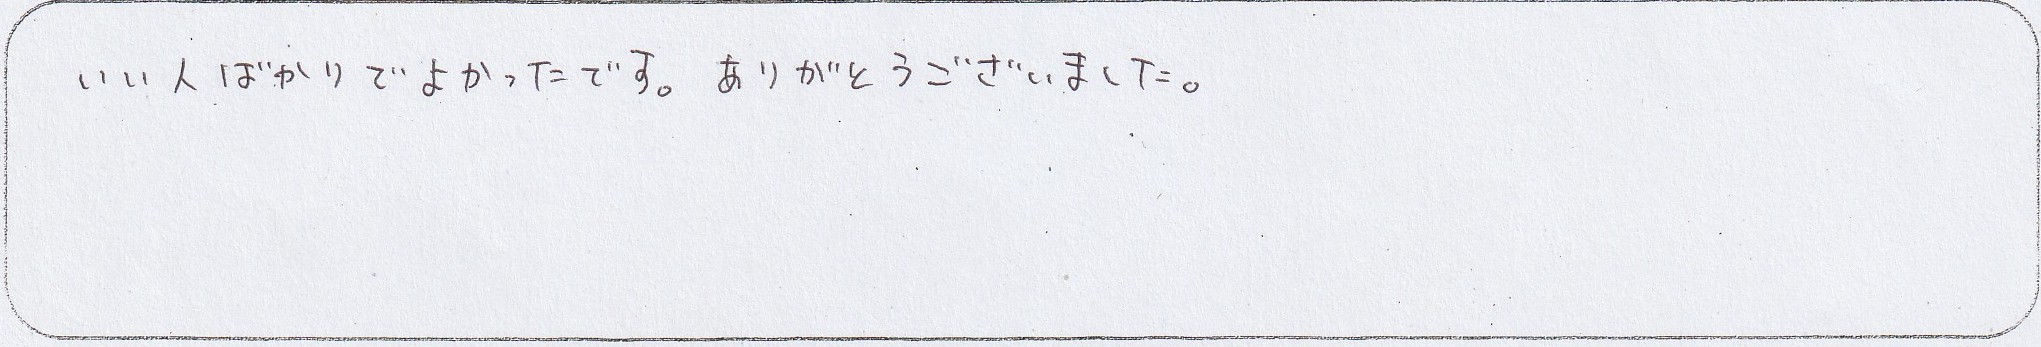 いい人ばかりでよかったです。ありがとうございました。